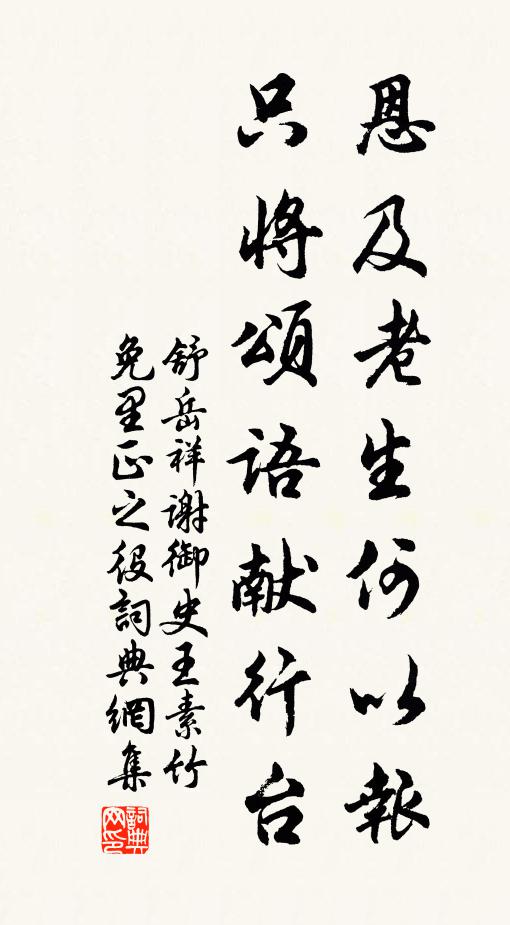 恩及老生何以報
只將頌語献行台
舒岳祥谢御史王素竹
免里正之役詞典網集
詞典网印